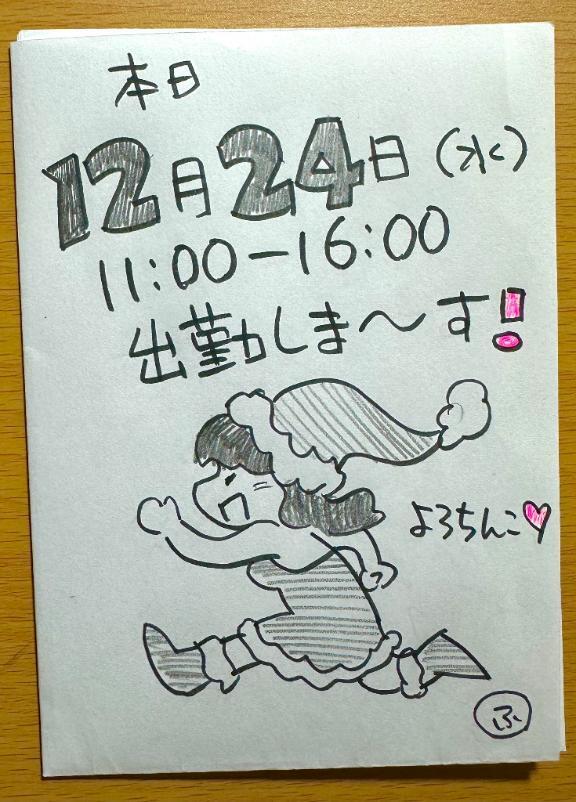 本日
12月24日(水)
11:00-16:00
出勤しま〜す!
よろちんこ♥
ふ